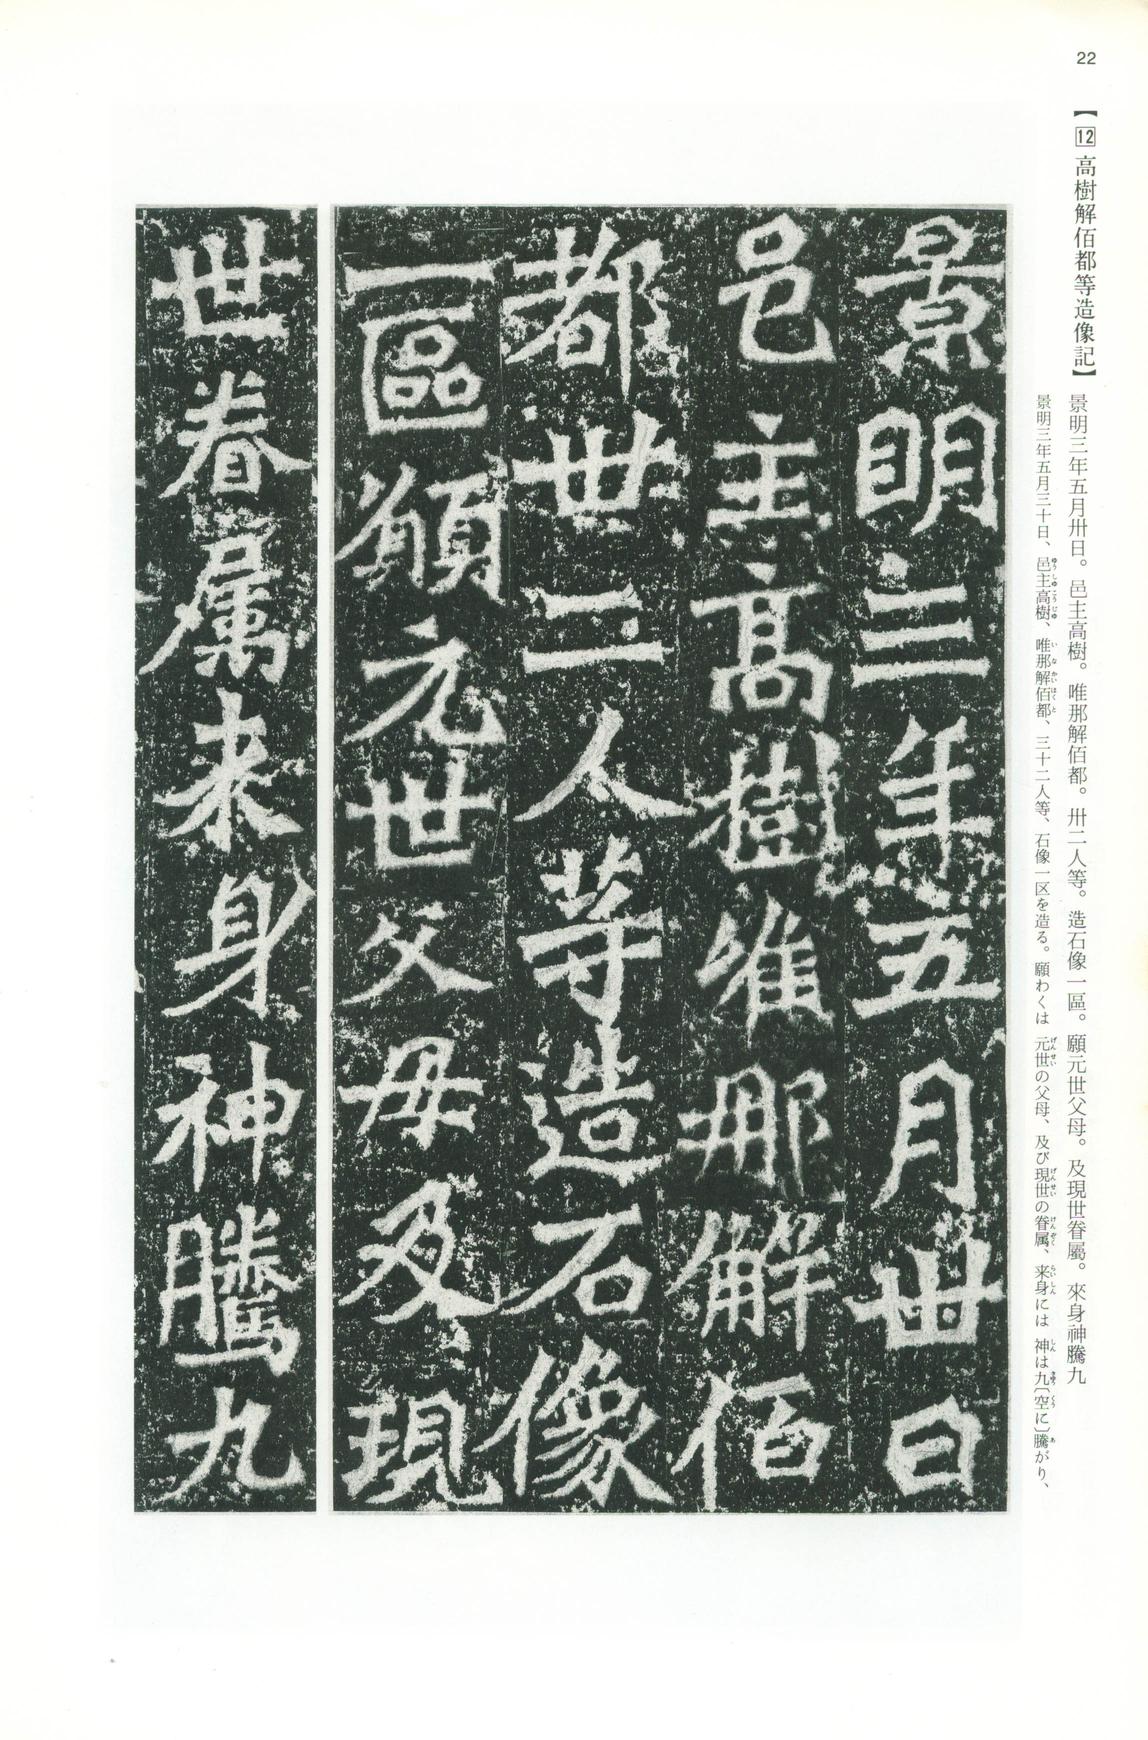 22
【12高樹解佰都等造像記】
景明三年五月卅日。邑主高樹。唯那解佰都。卅二人等。造石像一區。願元世父母。及現世眷屬。來身神騰九
景明三年五月三十日、邑主高樹、唯那解佰都、三十二人等、石像一区を造る。願わくは 元世の父母、及び現世の眷属、来身には 神は九〔空に〕騰がり、
景明三年五月卅日
邑主高樹唯那解佰
都卅二人等造石像
一區願元世父母及現
世眷属来身神騰九